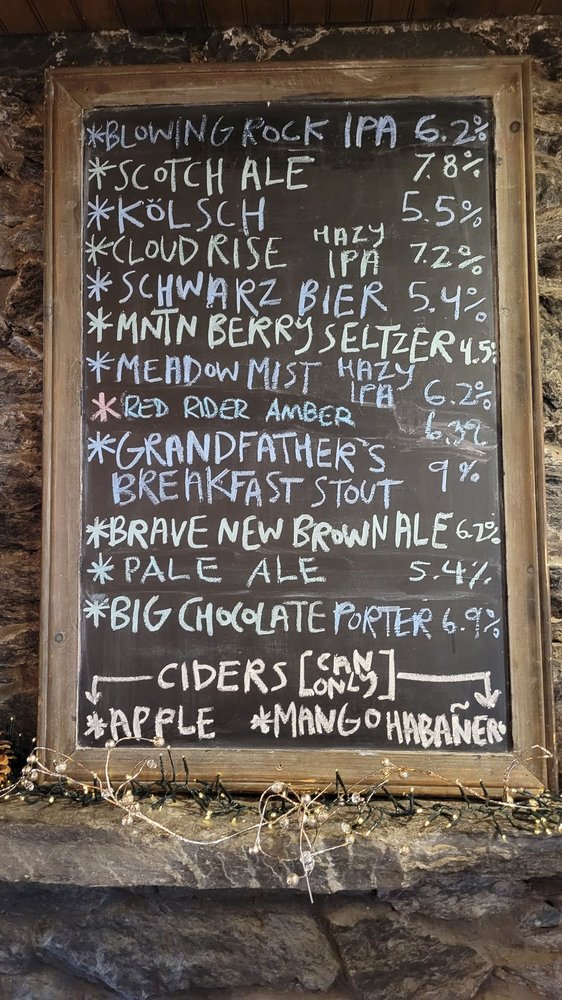 *BLOWING ROCK IPA 6.2%
*SCOTCH ALE 7.8%
*KÖLSCH 5.5%
*CLOUD RISE HAZY IPA 7.2%
*SCHWARZ BIER 5.4%
*MNTN BERRY SELTZER 4.5%
*MEADOW MIST HAZY IPA 6.2%
*RED RIDER AMBER
*GRANDFATHER'S
BREAKFAST STOUT 9%
*BRAVE NEW BROWN ALE
*PALE ALE 5.4%
*BIG CHOCOLATE PORTER 6.9%
CIDERS [CAN ONLY]
*APPLE *MANGO HABAÑERO